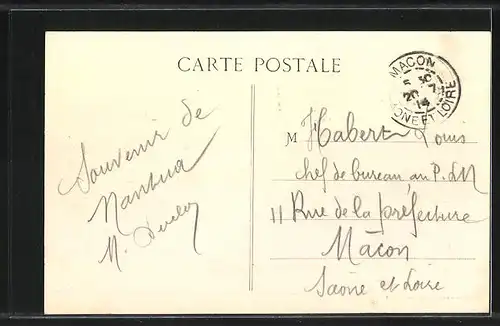 CARTE POSTALE
MACON
SAONE ET LOIRE
Souvenir de
Nantua
M.
M Habert Louis
chef de bureau au P.LM
11 Rue de la préfecture
Mâcon
Saône et Loire